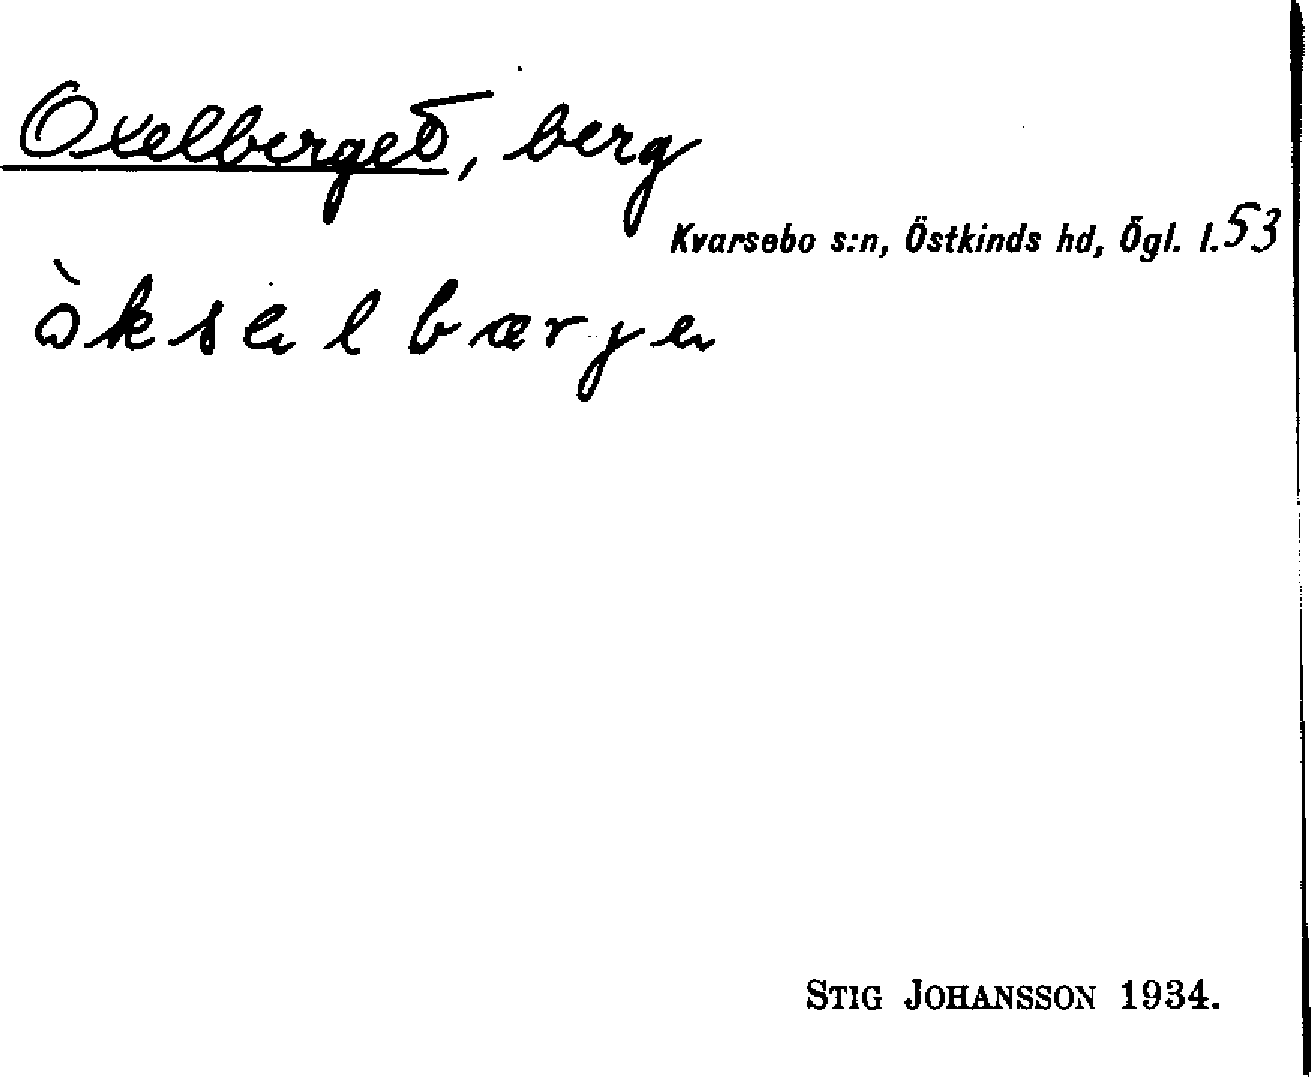 Oxelberget, berg
Kvarsebo s:n, Östkinds hd, Ögl. l. 53
òksalbærjen
STIG JOHANSSON 1934.